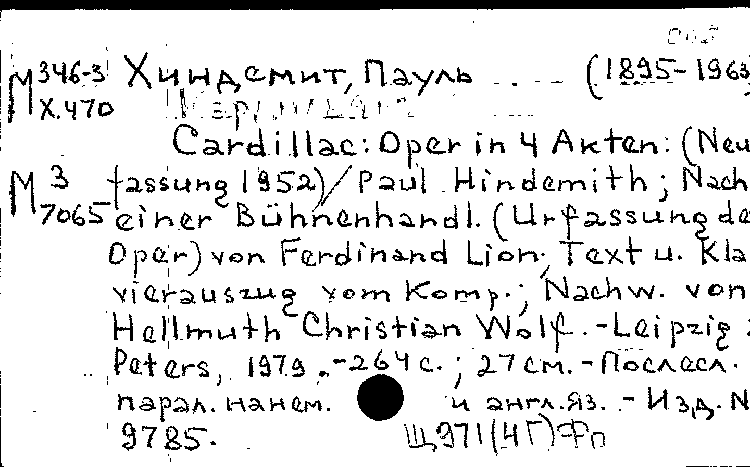 М 346-3 Хиндемит, Пауль (1895-1963
Х.470
Cardillac: Oper in 4 Akten: (Neu
М 3 fassung 1952) / Paul Hindemith; Nach
7065 einer Bühnenhandl. (Urfassung de
Oper) von Ferdinand Lion; Text u. Kla
vierauszug vom Komp.; Nachw. von
Hellmuth Christian Wolf. - Leipzig :
Peters, 1979. - 264 с.; 27 см. - Послесл.
парал. на нем. и англ. яз. - Изд. N
9785. Щ971(4Г)